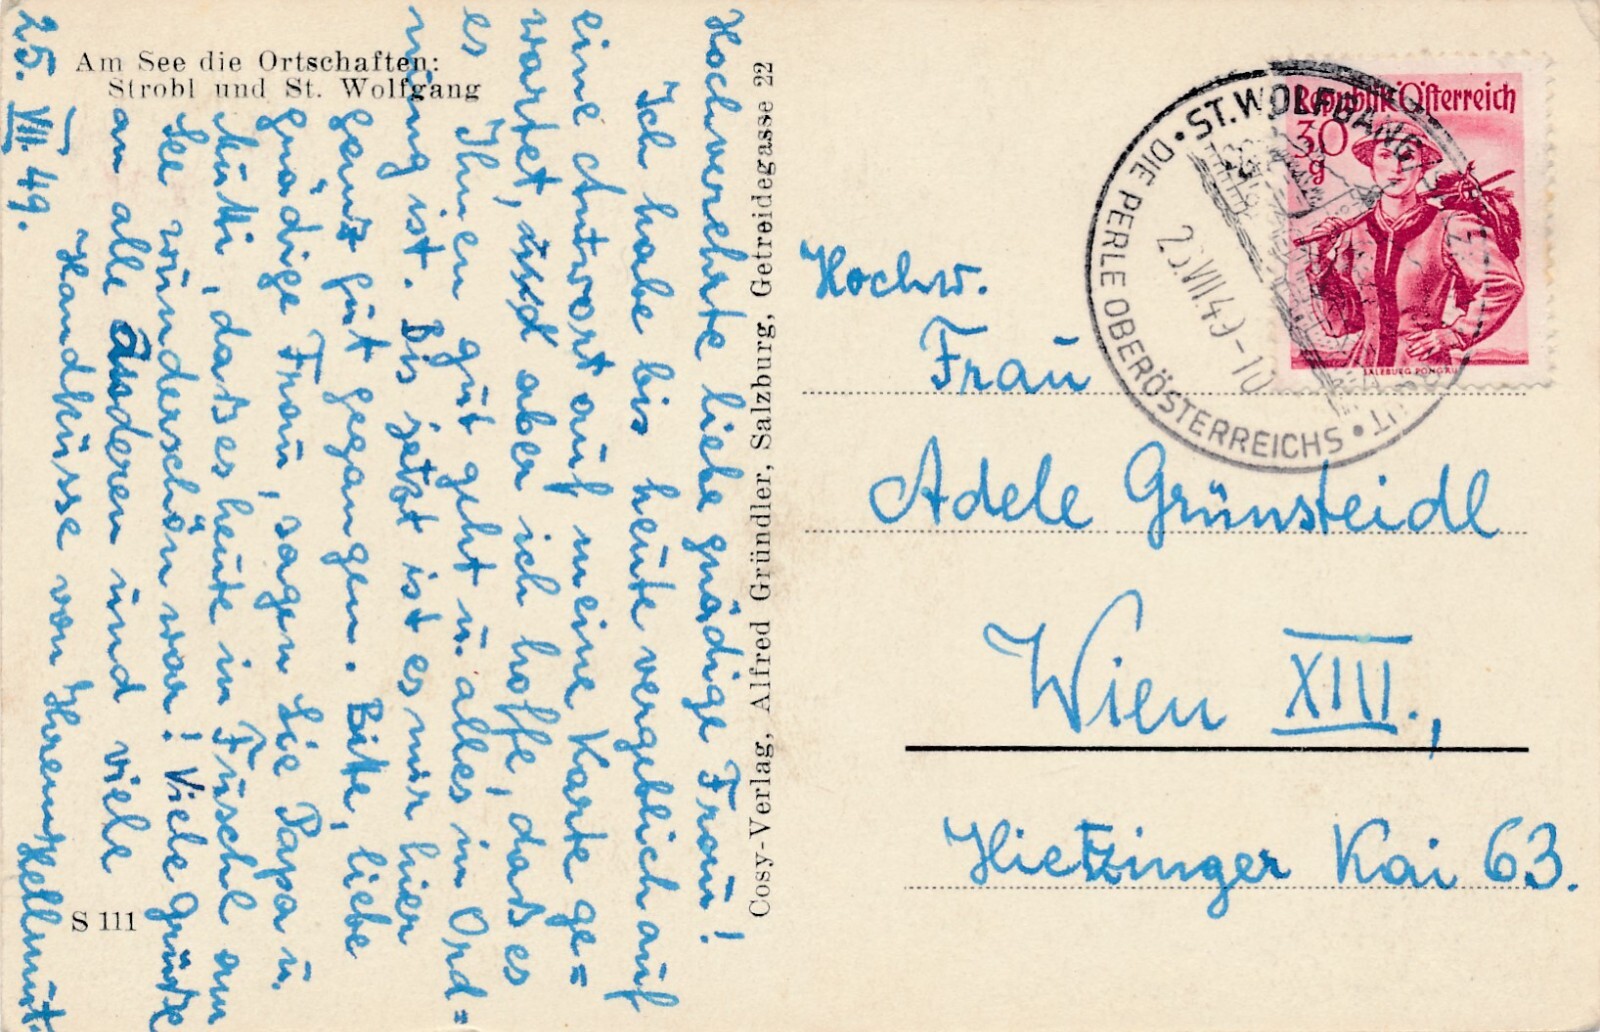 Am See die Ortschaften:
Strobl und St. Wolfgang
25. VII. 49.
Hochverehrte liebe gnädige Frau!
Ich habe bis heute vergeblich auf
eine Antwort auf meine Karte ge=
wartet, und aber ich hoffe, daß es
es Ihnen gut geht u. alles in Ord=
nung ist. Bis jetzt ist es mir hier
ganz gut gegangen. Bitte, liebe
gnädige Frau, sagen Sie Papa u.
Mutti, daß es heute in Fuschl am
See wunderschön war! Viele Grüße
an alle anderen und viele
Handküsse von Ihrem Hellmut.
S 111
Cosy-Verlag, Alfred Gründler, Salzburg, Getreidegasse 22
Republik Österreich
30 g
SALZBURG, PONGAU
ST. WOLFGANG
DIE PERLE OBERÖSTERREICHS
VII.49-10
Hochw.
Frau
Adele Grünsteidl
Wien XIII.,
Hietzinger Kai 63.